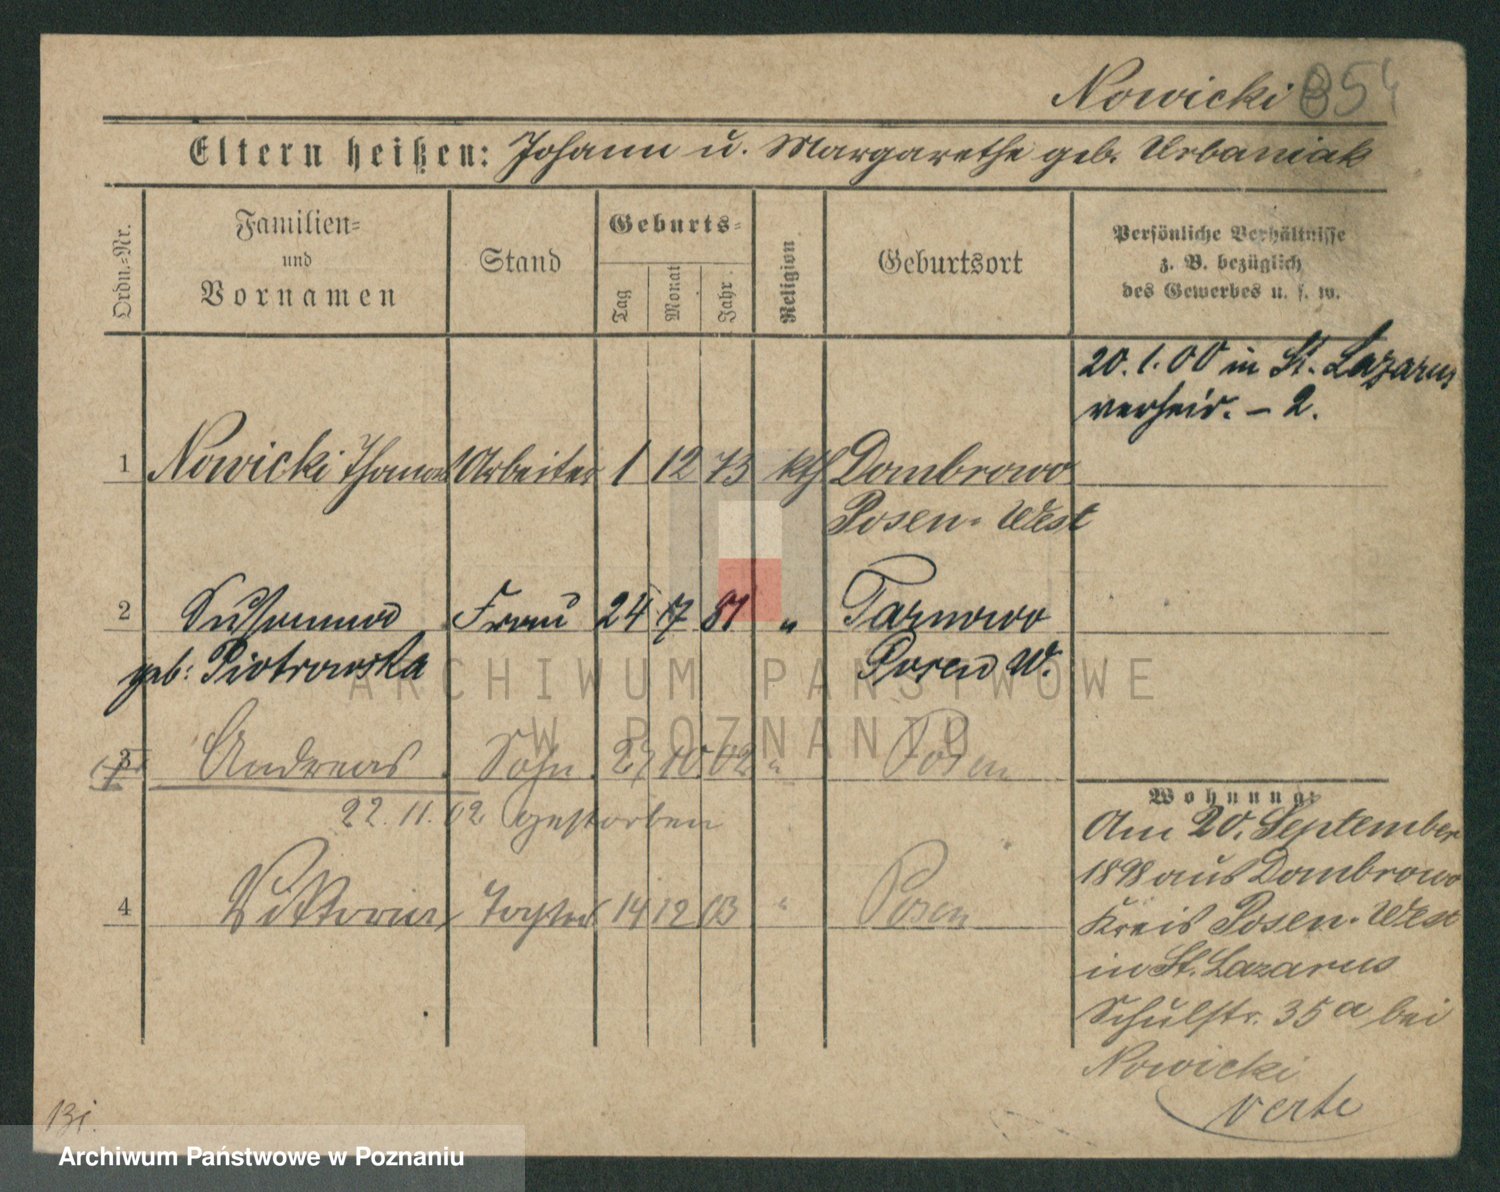 Nowicki 854
Eltern heißen: Johann u. Margarethe geb. Urbaniak
Ordn.-Nr.
Familien- und Vornamen
Stand
Geburts-
Tag
Monat
Jahr
Religion
Geburtsort
Persönliche Verhältnisse
z. B. bezüglich
des Gewerbes u. s. w.
20.1.00 in St. Lazarus
verheir. – 2.
1 Nowicki Thomas Arbeiter 1 12 73 kth Dombrowo
Posen-West
2 Frau 24 7 81 " Tarnowo
geb: Piotrowska Posen W.
3 Andreas Sohn 27 10 02 " Posen
22.11.02 gestorben
4 Viktoria Tochter 14 12 03 " Posen
Wohnung:
Am 20. September
1898 aus Dombrowo
Kreis Posen-West
in St. Lazarus
Schulstr. 35a bei
Nowicki
verte
13j.
ARCHIWUM PAŃSTWOWE
W POZNANIU
Archiwum Państwowe w Poznaniu